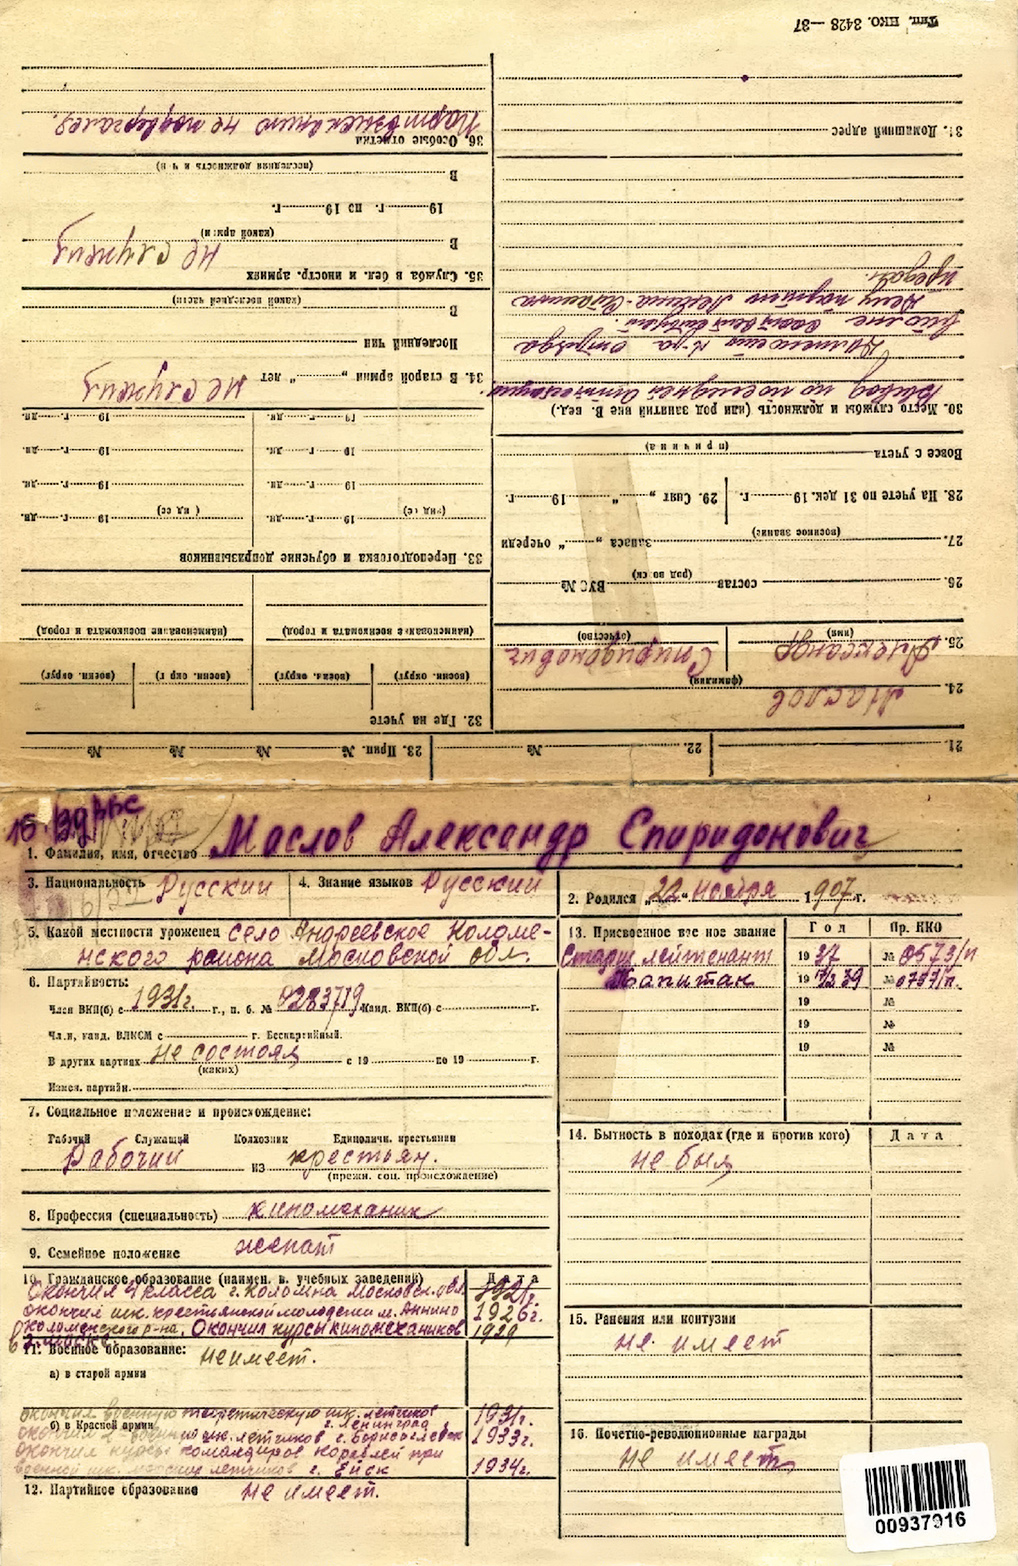 Тип. НКО. 3428—37
31. Домашний адрес
30. Место службы и должность (или род занятий вне В. вед.)
Вывод по последней аттестации
Должности к-ра отряда
вполне соответствует.
Делу партии Ленина-Сталина
предан.
Вовсе с учета
(причина)
28. На учете по 31 дек. 19 г.
29. Снят „ “ 19 г.
27. запаса „ “ очереди
(военное звание)
26. состав ВУС №
(род войск)
25. Александр Спиридонович
(имя) (отчество)
24. Маслов
(фамилия)
21.
22. №
36. Особые отметки
Партвзысканию не подвергался.
В
(последняя должность и ч-и)
19 г. по 19 г.
В не служил
(какой армии)
35. Служба в бел. и иностр. армиях
В
(какой последней части)
Последний чин
34. В старой армии „ “ лет не служил
19 г. дн. 19 г. дн.
19 г. дн. 19 г. дн.
19 г. дн. 19 г. дн.
19 г. дн. 19 г. дн.
33. Переподготовка и обучение допризывников
(наименование военкомата и город) (наименование военкомата и город)
(воен. округ) (воен. округ) (воен. округ) (воен. округ)
32. Где на учете
23. Прип. № № № №
1. Фамилия, имя, отчество Маслов Александр Спиридонович
3. Национальность Русский
4. Знание языков Русский
2. Родился „22“ ноября 1907 г.
5. Какой местности уроженец село Андреевское Коломе-
нского района Московской обл.
6. Партийность:
Член ВКП(б) с 1931г. г., п. б. № 0283719 Канд. ВКП(б) с
Член, канд. ВЛКСМ с г. Беспартийный.
В других партиях не состоял с 19 по 19 г.
(каких)
Измен. партийн.
7. Социальное положение и происхождение:
Рабочий Служащий Колхозник Единоличн. крестьянин
Рабочий из крестьян.
(прежн. соц. происхождение)
8. Профессия (специальность) киномеханик
9. Семейное положение женат
10. Гражданское образование (наимен. в. учебных заведений) Дата
Окончил 4 класса г. Коломна Московск. обл. 1921г.
окончил шк. крестьянской молодежи м. Аннино 1926г.
Коломенского р-на. Окончил курсы киномехаников 1929
в г. Москве.
11. Военное образование: не имеет.
а) в старой армии
б) в Красной армии
окончил военную теоретическую шк. летчиков
г. Ленинград 1931г.
окончил 2 военную шк. летчиков г. Борисоглебск 1933г.
окончил курсы командиров кораблей при
военной шк. морских летчиков г. Ейск 1934г.
12. Партийное образование не имеет.
13. Присвоенное военное звание Год Пр. НКО
Старш. лейтенант 1937 № 0573/п
Капитан 19 39 № 0757/п.
19 №
19 №
19 №
14. Бытность в походах (где и против кого) Дата
не был
15. Ранения или контузии
не имеет
16. Почетно-революционные награды
не имеет
00937916